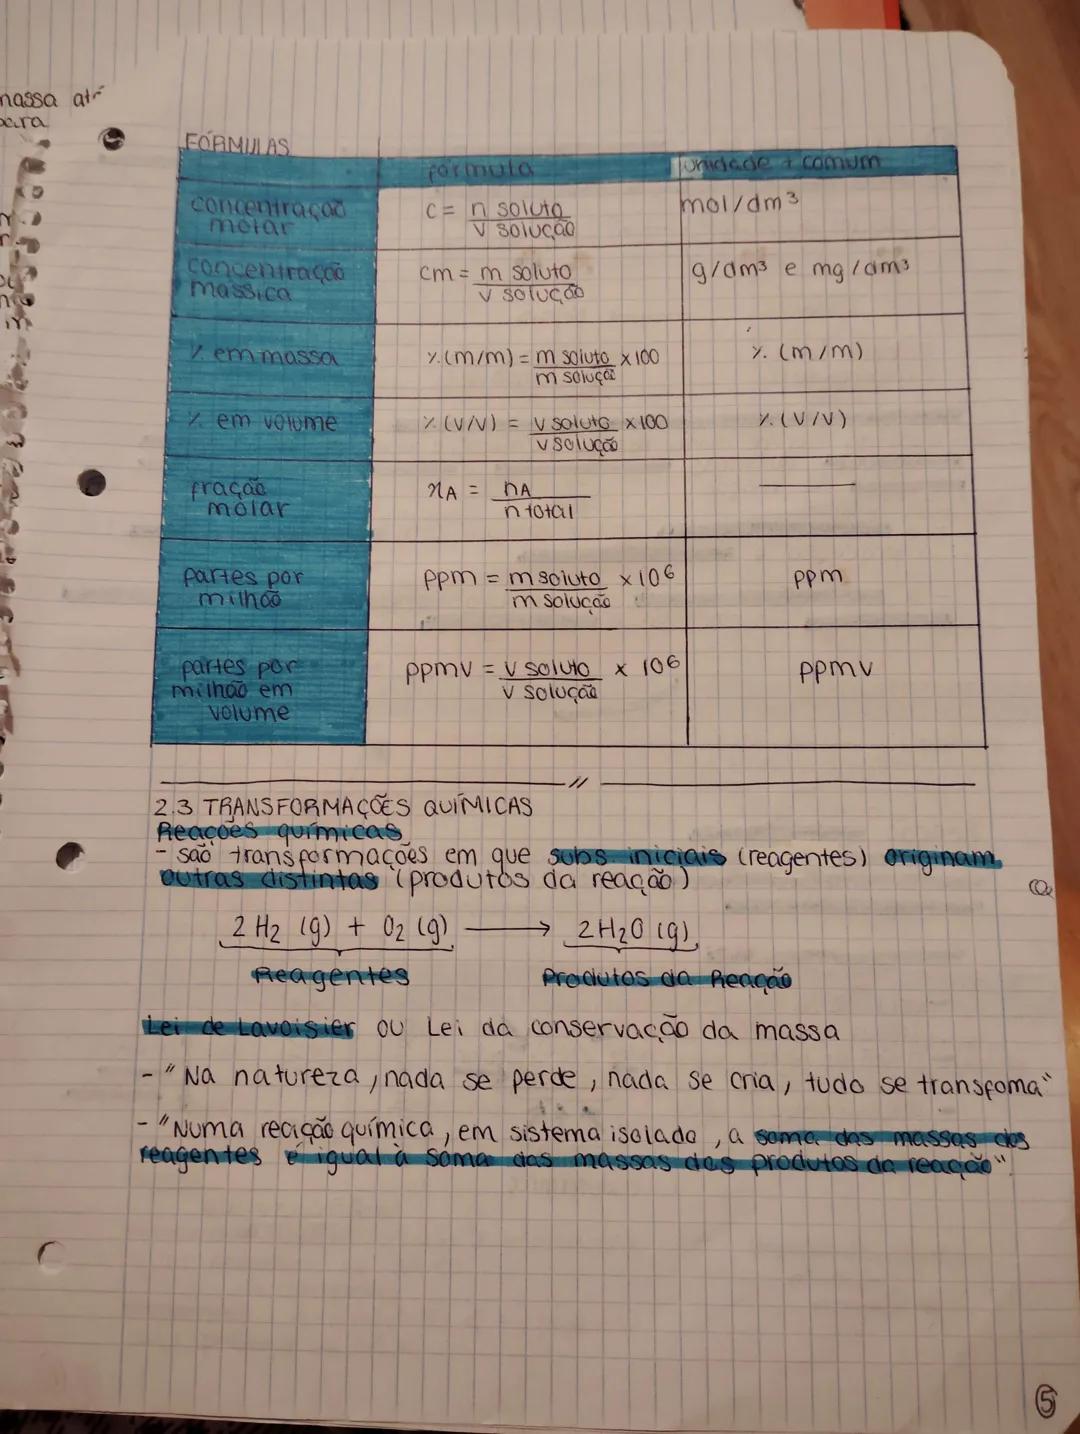 massa até
para
FÓRMULAS
fórmula
unidade + comum
concentração
molar
c = n soluto
V solução
mol/dm³
concentração
mássica
cm = m soluto
V solução
g/dm³ e mg/dm³
% em massa
%(m/m) = m soluto x100
m solução
% (m/m)
% em volume
% (V/V) = V soluto x100
V solução
%(V/V)
fração
molar
xA = nA
n total
partes por
milhão
ppm = m soluto x 10⁶
m solução
ppm
partes por
milhão em
volume
ppmv = V soluto x 10⁶
V solução
ppmv
//
2.3 TRANSFORMAÇÕES QUÍMICAS
Reações químicas
- são transformações em que subs. iniciais (reagentes) originam
outras distintas (produtos da reação)
2 H₂ (g) + O₂ (g) ⟶ 2 H₂O (g)
Reagentes
Produtos da Reação
Lei de Lavoisier ou Lei da conservação da massa
- "Na natureza, nada se perde, nada se cria, tudo se transfoma"
- "Numa reação química, em sistema isolado, a soma das massas dos
reagentes é igual à soma das massas dos produtos da reação".
5